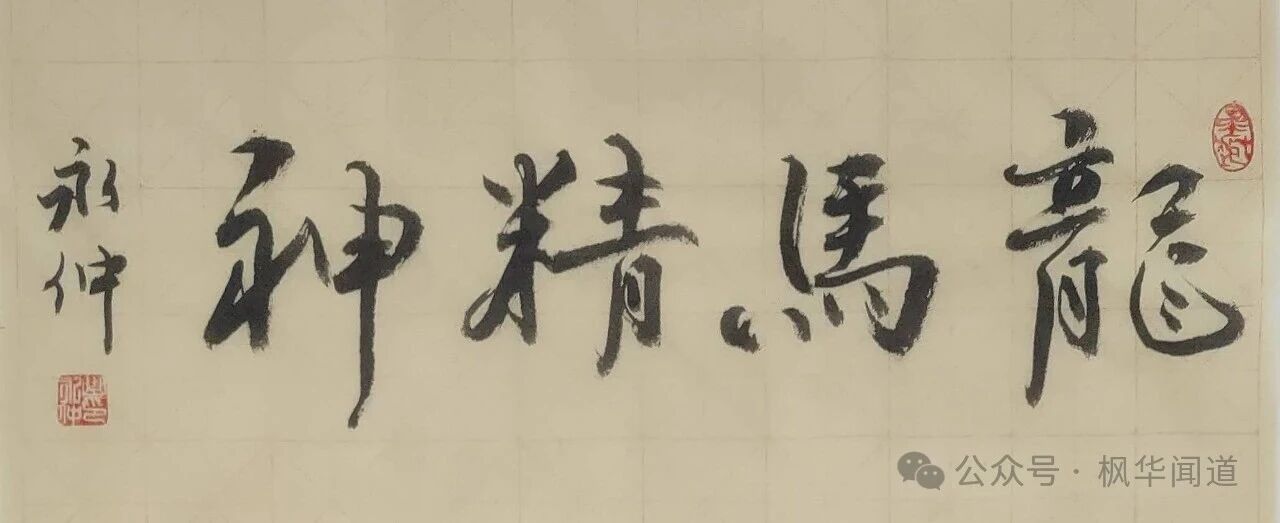 龍馬精神
永仲
公众号·枫华闻道